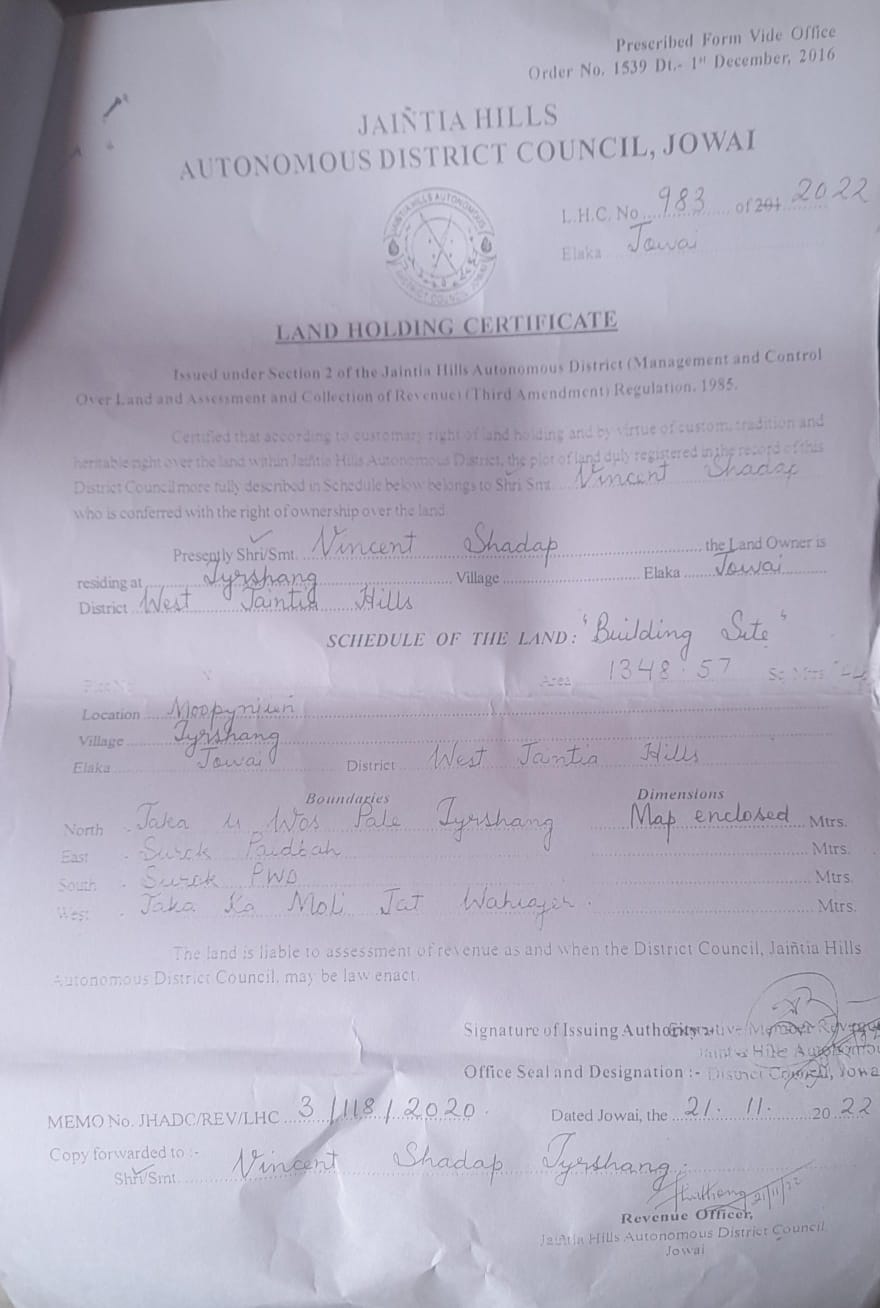 Prescribed Form Vide Office
Order No. 1539 Dt.- 1st December, 2016
JAIÑTIA HILLS
AUTONOMOUS DISTRICT COUNCIL, JOWAI
JAINTIA HILLS AUTONOMOUS DISTRICT COUNCIL JOWAI
L.H.C. No 983 of 201 2022
Elaka Jowai
LAND HOLDING CERTIFICATE
Issued under Section 2 of the Jaintia Hills Autonomous District (Management and Control
Over Land and Assessment and Collection of Revenue) (Third Amendment) Regulation, 1985.
Certified that according to customary right of land holding and by virtue of custom, tradition and
heritable right over the land within Jaiñtia Hills Autonomous District, the plot of land duly registered in the record of this
District Council more fully described in Schedule below belongs to Shri Smt. Vincent Shadap
who is conferred with the right of ownership over the land.
Presently Shri/Smt. Vincent Shadap the Land Owner is
residing at Tyrshang Village Elaka Jowai
District West Jaintia Hills
SCHEDULE OF THE LAND: "Building Site"
Area 1348.57 Sq Mtrs
Location Moopyniein
Village Tyrshang
Elaka Jowai District West Jaintia Hills
Boundaries Dimensions
North - Jaka u Wos Pale Tyrshang Map enclosed Mtrs.
East - Surok Paidbah Mtrs.
South - Surok PWD Mtrs.
West - Jaka Ka Moli Jat Mtrs.
The land is liable to assessment of revenue as and when the District Council, Jaiñtia Hills
Autonomous District Council, may be law enact.
Signature of Issuing Authority :- Executive Member Revenue
Jaintia Hills Autonomou
Office Seal and Designation :- District Council, Jowa
MEMO No. JHADC/REV/LHC 3/118/2020. Dated Jowai, the 21. 11. 2022
Copy forwarded to :-
Shri/Smt. Vincent Shadap Tyrshang.
21/11/22
Revenue Officer,
Jaiñtia Hills Autonomous District Council
Jowai